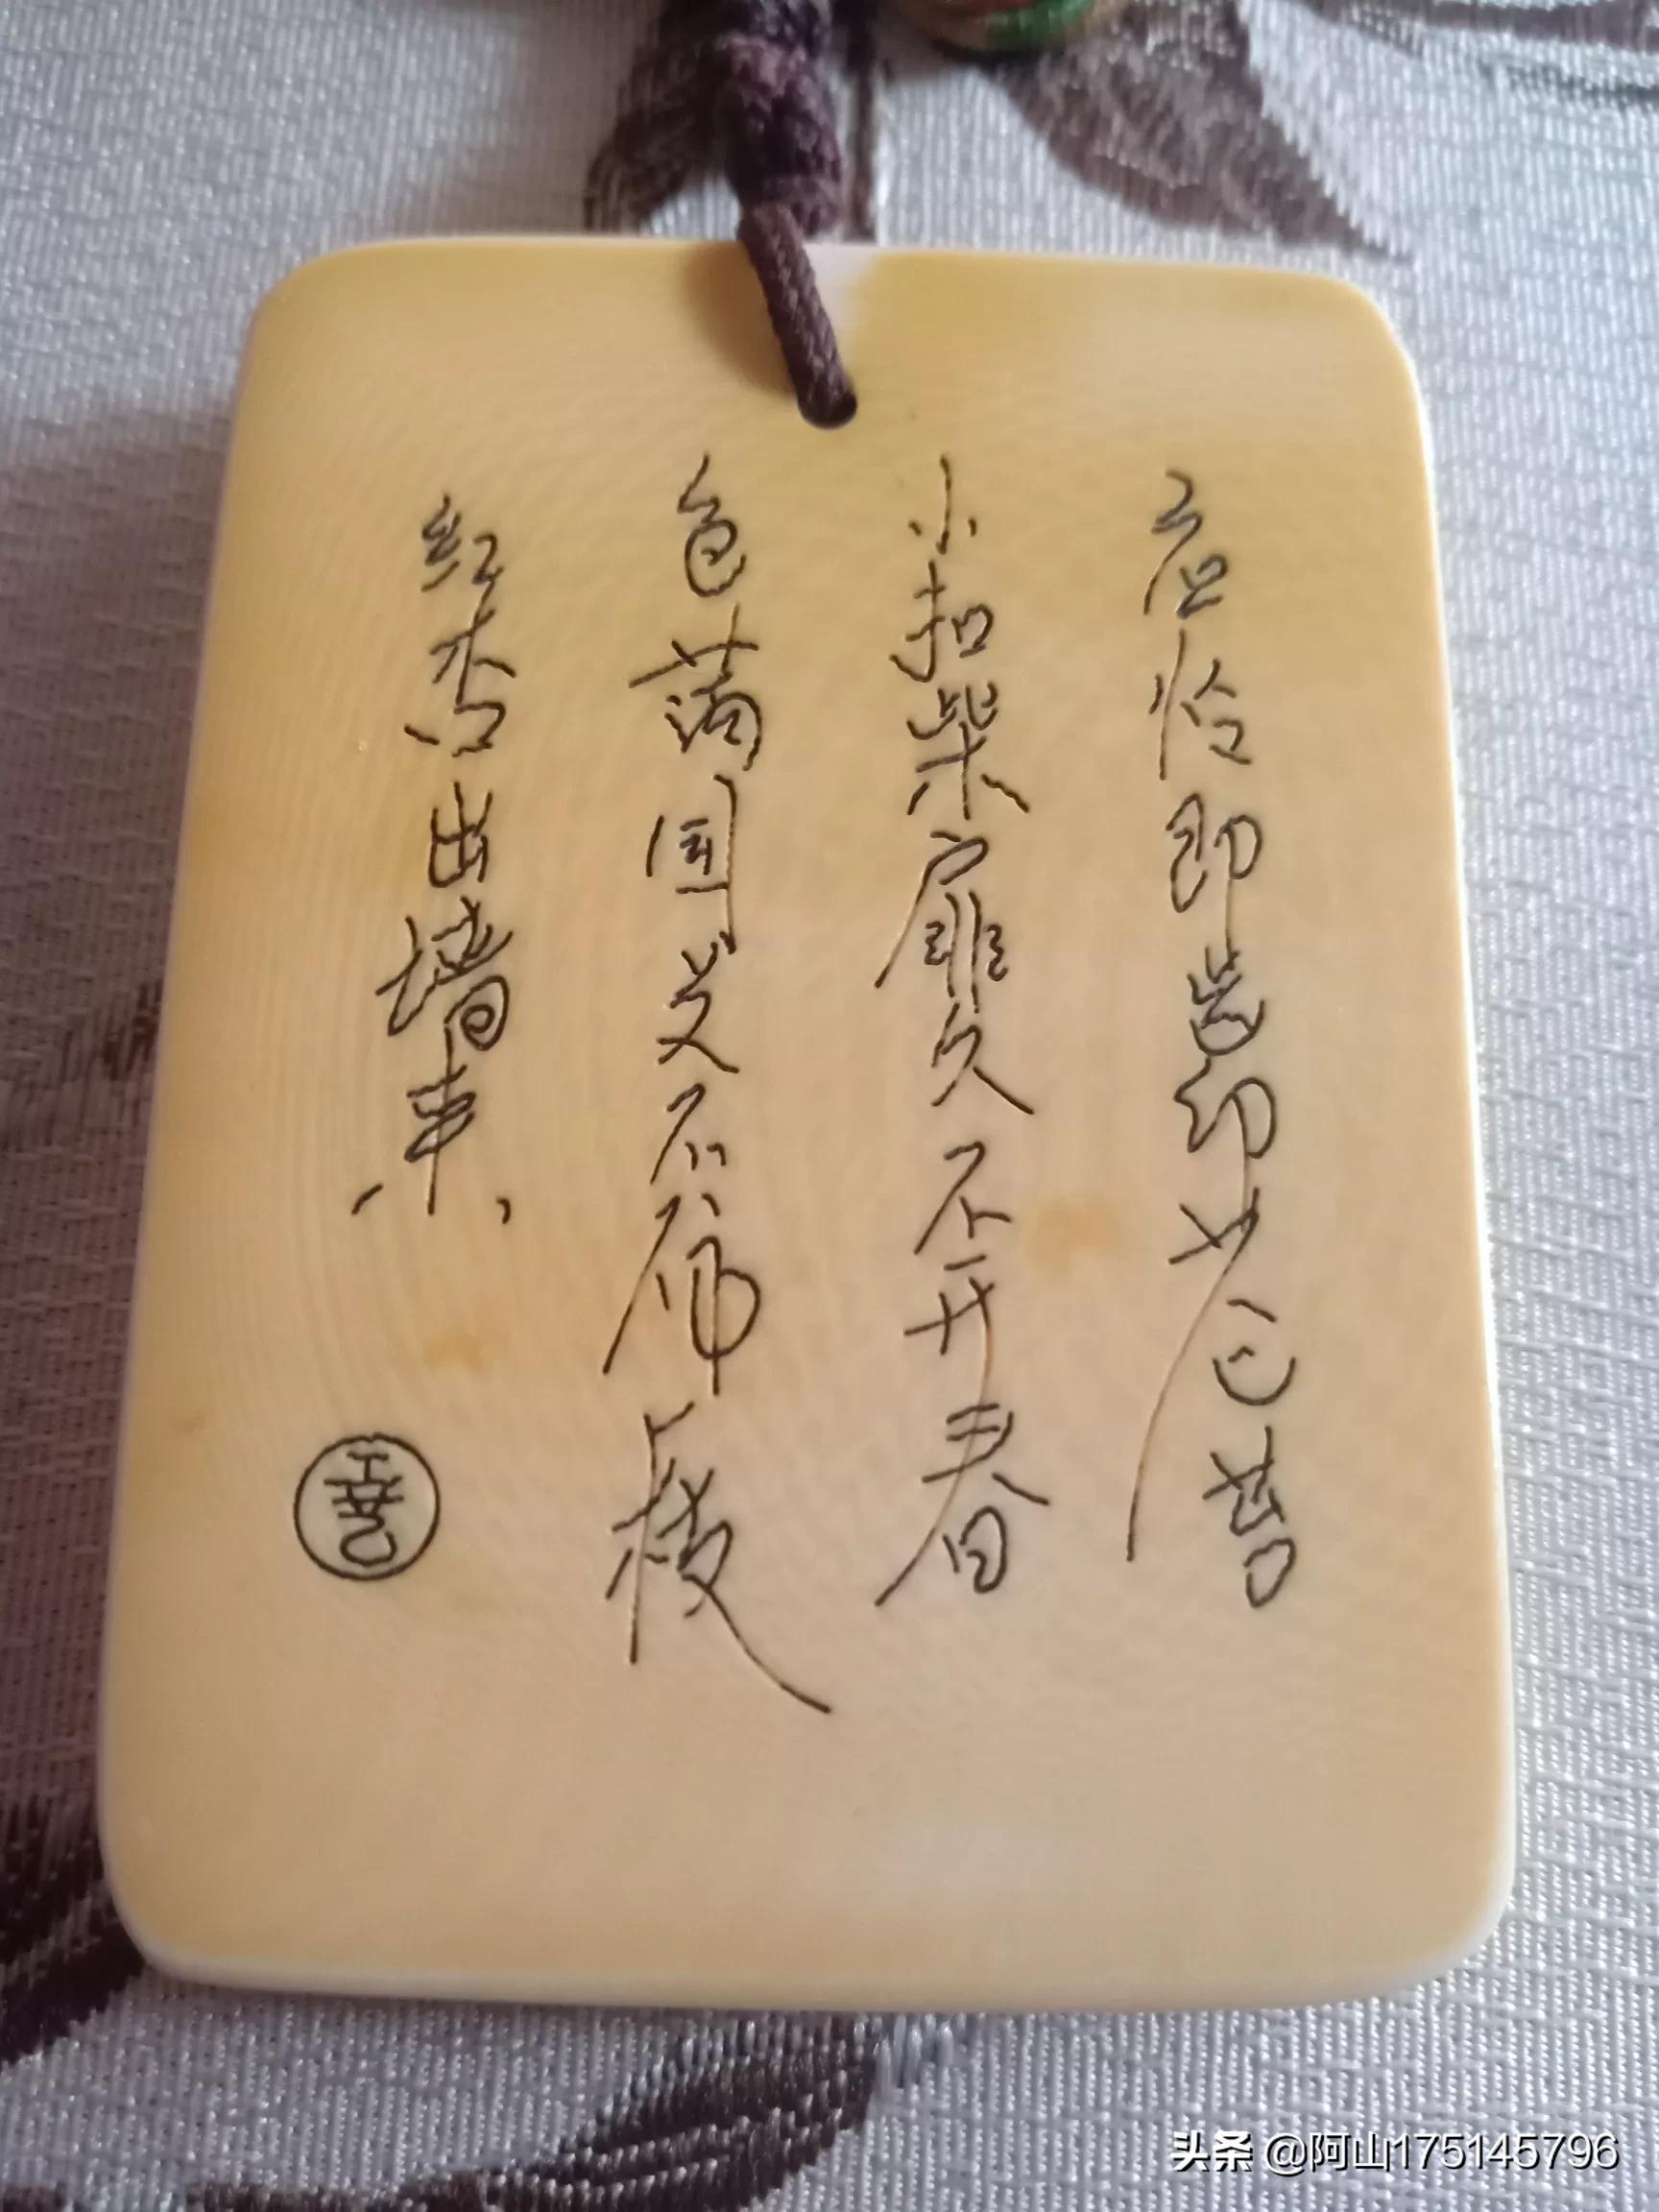 应怜即齿印苍苔
小扣柴扉久不开春
色满园关不枝
红杏出墙来
头条 @阿山175145796